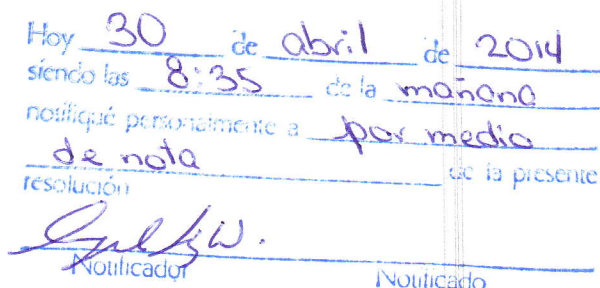 Hoy 30 de abril de 2014
siendo las 8:35 de la mañana
notifiqué personalmente a por medio
de nota de la presente
resolución
Notificador Notificado